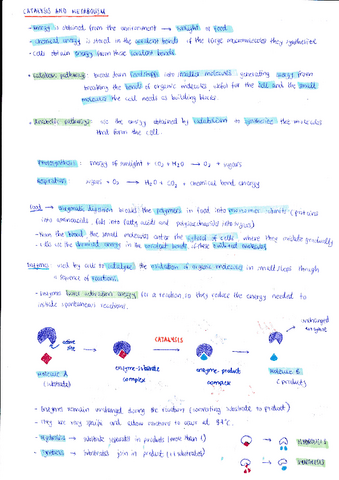 CATALYSIS AND METABOLISM
- energy is obtained from the environment → sunlight or food
- chemical energy is stored in the covalent bonds of the large macromolecules they synthesize
- cells obtain energy from these covalent bonds
- catabolic pathway: break down foodstuffs into smaller molecules generating energy from
breaking the bonds of organic molecules, useful for the cell and the small
molecules the cell needs as building blocks.
- anabolic pathway: use the energy obtained by catabolism to synthesize the molecules
that form the cell.
Photosynthesis: energy of sunlight + CO2 + H2O → O2 + sugars
Respiration: sugars + O2 → H2O + CO2 + chemical bond energy
Food → enzymatic digestion breaks the polymers in food into monomeric subunits (proteins
into aminoacids, fats into fatty acids and polysaccharides into sugars)
- from the food the small molecules enter the cytosol of cells where they oxidate gradually
- cells use the chemical energy in the covalent bonds of these oxidized molecules
Enzyme: used by cells to catalyse the oxidation of organic molecules in small steps through
a sequence of reactions.
- enzymes lower activation energy for a reaction, so they reduce the energy needed to
initiate spontaneous reactions.
unchanged
enzyme
active
site
CATALYSIS
Molecule A
(substrate)
enzyme-substrate
complex
enzyme-product
complex
Molecule B
(product)
- Enzymes remain unchanged during the reaction (converting substrate to product)
- They are very specific and allow reactions to occur at 37°C.
- Hydrolysis → substrate separates in products (more than 1)
HYDROLYSIS
- Synthesis → substrates join in product
SYNTHESIS